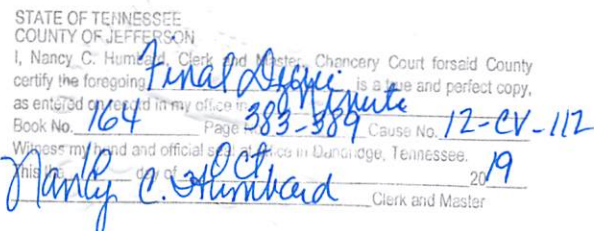 STATE OF TENNESSEE
COUNTY OF JEFFERSON
I, Nancy C. Humbard, Clerk and Master, Chancery Court forsaid County
certify the foregoing Final Decree is a true and perfect copy,
as entered on record in my office in Minute
Book No. 164 Page 383-389 Cause No. 12-CV-112
Witness my hand and official seal at office in Dandridge, Tennessee.
This the 10 day of Oct 2019
Nancy C. Humbard Clerk and Master